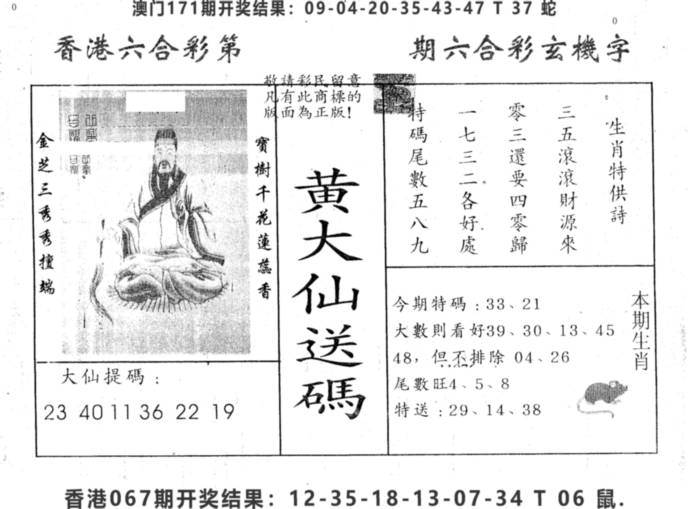 澳门171期开奖结果：09-04-20-35-43-47 T 37 蛇
0
0
香港六合彩第
期六合彩玄機字
敬請彩民留意
凡有此商標的
版面為正版！
金芝三秀秀擅端
寶樹千花蓮蕊香
大仙提碼：
23 40 11 36 22 19
黃大仙送碼
生肖特供詩
三五滾滾財源來
零三還要四零歸
一七三二各好處
特碼尾數五八九
今期特碼：33、21
大數則看好39、30、13、45
48，但不排除 04、26
尾數旺4、5、8
特送：29、14、38
本期生肖
香港067期开奖结果：12-35-18-13-07-34 T 06 鼠.